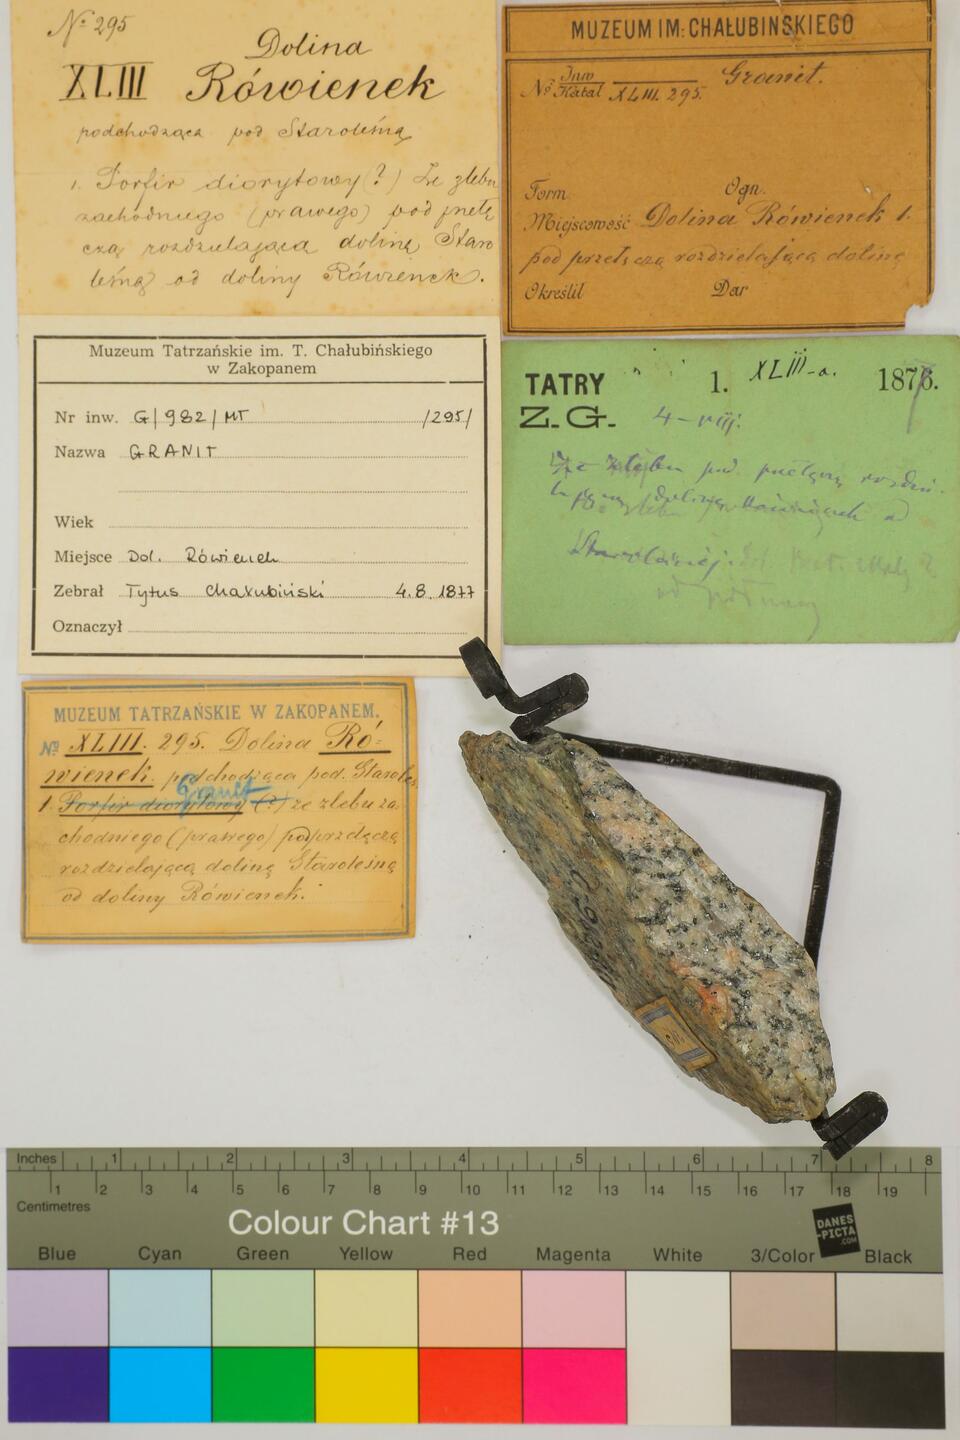 No 295
XLIII
Dolina
Rówienek
podchodząca pod Staroleśną
1. Porfir diorytowy (?) Ze żlebu
zachodniego (prawego) pod przełę
czą rozdzielającą dolinę Staro
leśną od doliny Rówienek.
MUZEUM IM: CHAŁUBINSKIEGO
No Inw
Katal XLIII. 295.
Granit.
Form.
Ogn.
Miejscowość Dolina Rówienek 1.
pod przełęczą rozdzielającą dolinę
Określił
Dar
Muzeum Tatrzańskie im. T. Chałubińskiego
w Zakopanem
Nr inw. G/982/MT /295/
Nazwa GRANIT
Wiek
Miejsce Dol. Rówienek
Zebrał Tytus Chałubiński 4.8.1877
Oznaczył
TATRY 1. XLIII-a. 1877.
Z. G. 4-VIII.
Ze żlebu pod przełęczą rozdzie-
doliną Rówienek od
Staroleśnej.
od północy
MUZEUM TATRZAŃSKIE W ZAKOPANEM.
No XLIII. 295. Dolina Ró-
wienek. podchodząca pod. Staroleś
Granit
1. Porfir diorytowy (?) ze żlebu za
chodniego (prawego) pod przełęczą
rozdzielającą dolinę Staroleśną
od doliny Rówienek.
Inches 1 2 3 4 5 6 7 8
1 2 3 4 5 6 7 8 9 10 11 12 13 14 15 16 17 18 19
Centimetres
Colour Chart #13
DANES
-PICTA
.COM
Blue Cyan Green Yellow Red Magenta White 3/Color Black